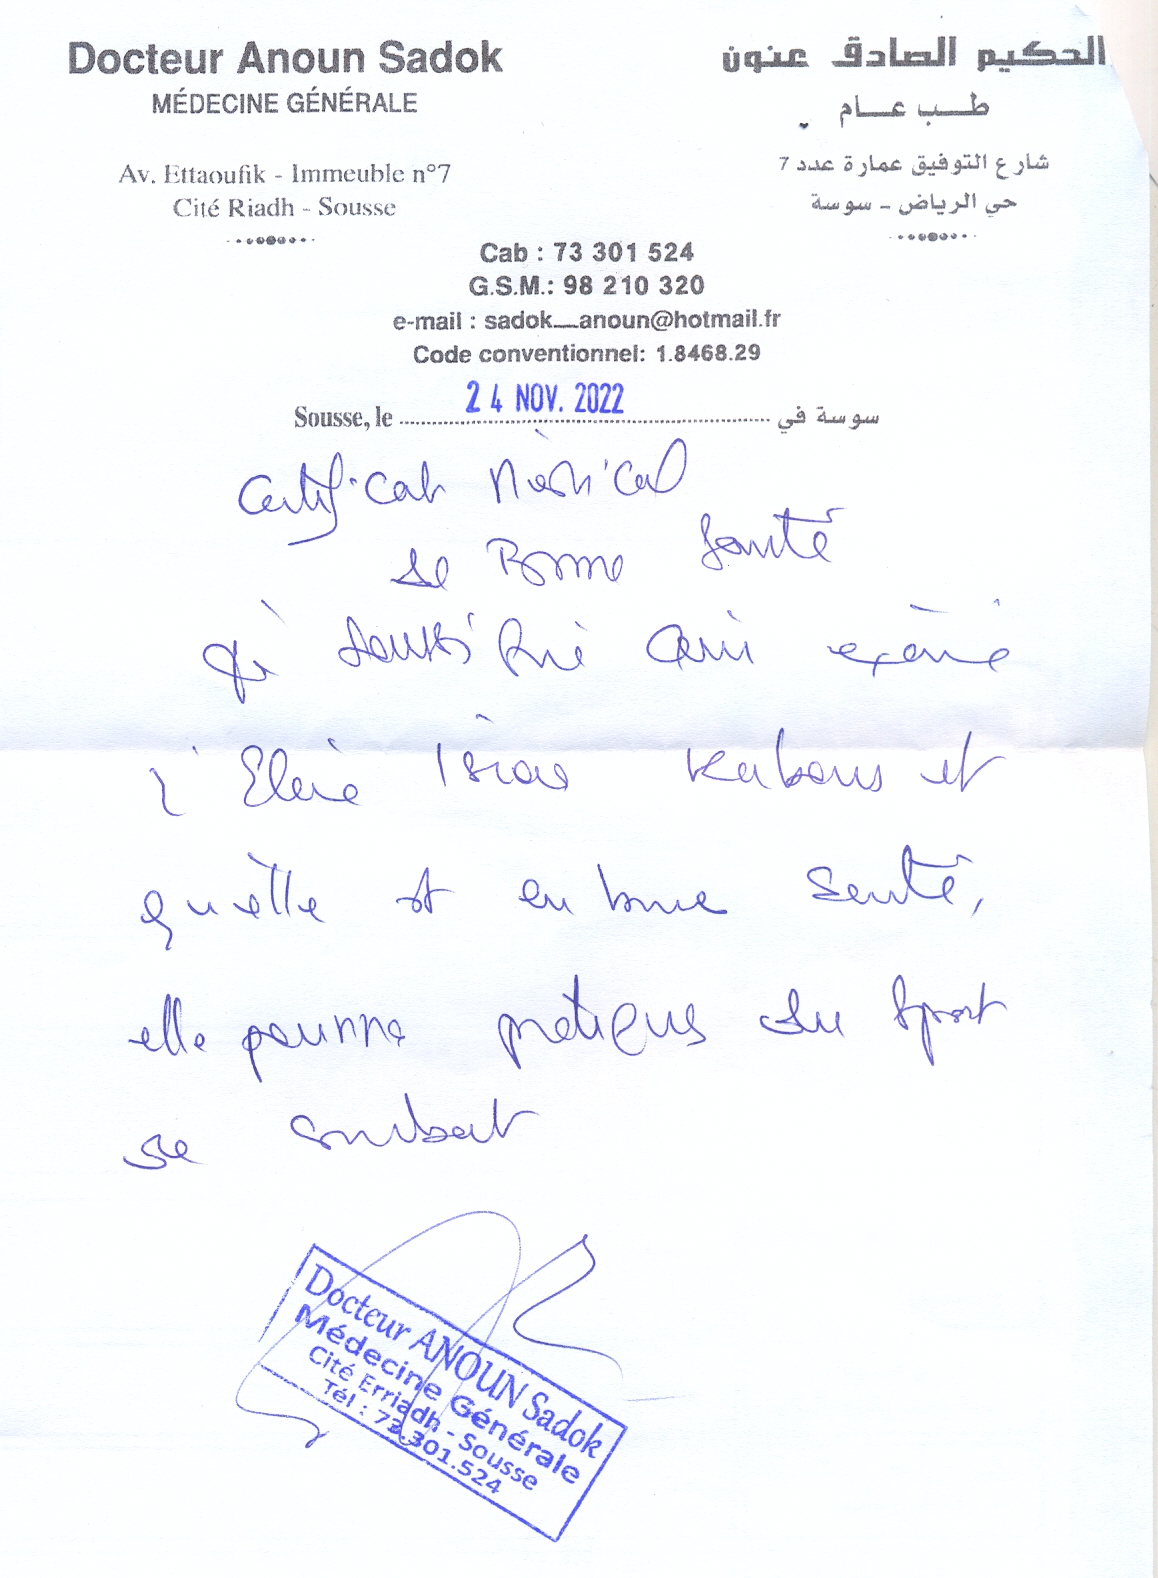 Docteur Anoun Sadok
MÉDECINE GÉNÉRALE
Av. Ettaoufik - Immeuble n°7
Cité Riadh - Sousse
الحكيم الصادق عنون
طب عام
شارع التوفيق عمارة عدد 7
حي الرياض - سوسة
Cab : 73 301 524
G.S.M.: 98 210 320
e-mail : sadok_anoun@hotmail.fr
Code conventionnel: 1.8468.29
Sousse, le 24 NOV. 2022 سوسة في
Certificat Médical
de Bonne Santé
examiné
l'Elève et
qu'elle est en bonne santé,
elle pourra pratiquer du sport
de combat
Docteur ANOUN Sadok
Médecine Générale
Cité Erriadh - Sousse
Tél : 73.301.524